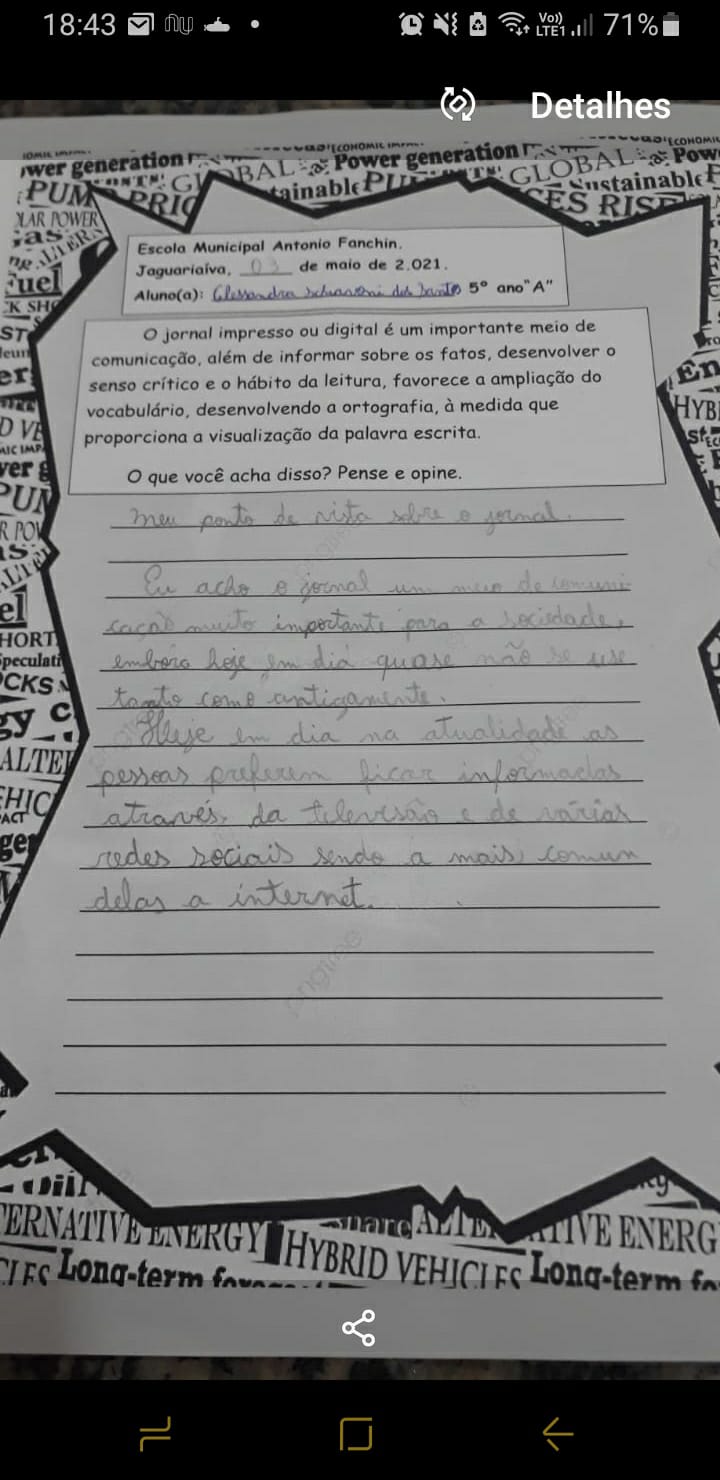 18:43
Vo)) LTE1 71%
Detalhes
wer generation
Power generation
GLOBAL
Pow
PUM
GLOBAL
tainable
Sustainable
LAR POWER
PRIC
CES RISE
Escola Municipal Antonio Fanchin.
Jaguariaíva, 03 de maio de 2.021.
Aluno(a): dos Santos 5° ano "A"
O jornal impresso ou digital é um importante meio de
comunicação, além de informar sobre os fatos, desenvolver o
senso crítico e o hábito da leitura, favorece a ampliação do
vocabulário, desenvolvendo a ortografia, à medida que
proporciona a visualização da palavra escrita.
O que você acha disso? Pense e opine.
Meu ponto de vista sobre o jornal.
Eu acho o jornal um meio de comuni
cação muito importante para a sociedade,
embora hoje em dia quase não se use
tanto como antigamente.
Hoje em dia na atualidade as
pessoas preferem ficar informadas
através da televisão e de várias
redes sociais sendo a mais comun
delas a internet.
pngtree
uel
K SHO
HYB
HORT
peculati
OCKS
gy
ALTE
ERNATIVE ENERGY
ATIVE ENERG
HYBRID VEHICLES
Long-term
Long-term fo